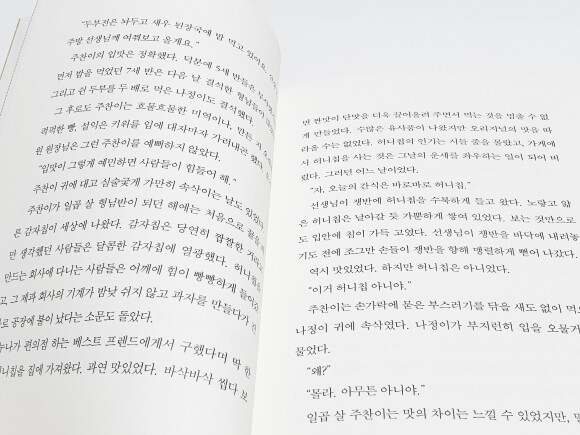 "두부전은 놔두고 새우 된장국에 밥 먹고 있어요.
주방 선생님께 여쭤보고 올게요."
주찬이의 입맛은 정확했다. 덕분에 5세 반들은
먼저 밥을 먹었던 7세 반은 다음 날 결석한 형님들이
그리고 쉰 두부를 두 배로 먹은 나정이도 결석했다.
그 후로도 주찬이는 흐물흐물한 미역이나, 반쯤
퍽퍽한 빵, 설익은 키위를 입에 대자마자 가려내곤 했다.
원 원장님은 그런 주찬이를 예뻐하지 않았다.
"입맛이 그렇게 예민하면 사람들이 힘들어 해."
주찬이 귀에 대고 심술궂게 가만히 속삭이는 날도 있었다.
주찬이가 일곱 살 형님반이 되던 해에는 처음으로 꿀을
른 감자칩이 세상에 나왔다. 감자칩은 당연히 짭짤한
만 생각했던 사람들은 달콤한 감자칩에 열광했다. 허니칩을
만드는 회사에 다니는 사람들은 어깨에 힘이 빵빵하게 들어갔
고, 그 제과 회사의 기계가 밤낮 쉬지 않고 과자를 만들다가
로 공장에 불이 났다는 소문도 돌았다.
누나가 편의점 하는 베스트 프렌드에게서 구했다며 딱 한
니칩을 집에 가져왔다. 과연 맛있었다. 바삭바삭 씹다 보
면 짠맛이 단맛을 더욱 끌어올려 주면서 먹는 것을 멈출 수 없
게 만들었다. 수많은 유사품이 나왔지만 오리지널의 맛을 따
라올 수는 없었다. 허니칩의 인기는 시들 줄을 몰랐고, 가게에
서 허니칩을 사는 것은 그날의 운세를 좌우하는 일이 되어 버
렸다. 그러던 어느 날이었다.
"자, 오늘의 간식은 바로바로 허니칩."
선생님이 쟁반에 허니칩을 수북하게 들고 왔다. 노랗고 얇
은 허니칩은 날아갈 듯 가볍하게 쌓여 있었다. 보는 것만으로
도 입안에 침이 가득 고였다. 선생님이 쟁반을 바닥에 내려놓
기도 전에 조그만 손들이 쟁반을 향해 맹렬하게 뻗어 나갔다.
역시 맛있었다. 하지만 허니칩은 아니었다.
"이거 허니칩 아니야."
주찬이는 손가락에 묻은 부스러기를 닦을 새도 없이 먹으
나정이 귀에 속삭였다. 나정이가 부지런히 입을 오물거
물었다.
"왜?"
"몰라. 아무튼 아니야."
일곱 살 주찬이는 맛의 차이는 느낄 수 있었지만,